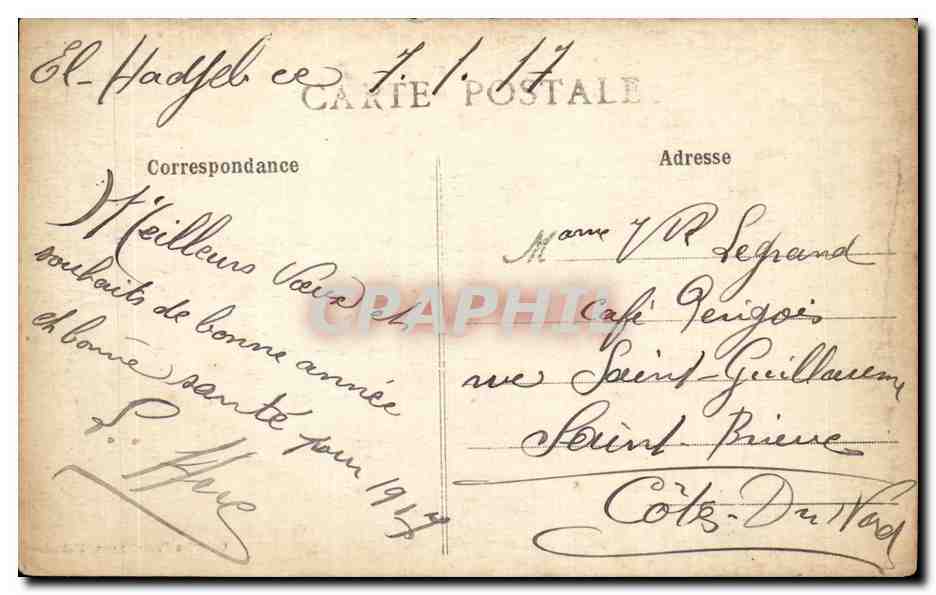 El-Hadjeb ce 7.1.17
CARTE POSTALE
Correspondance
Meilleurs Vœux et
souhaits de bonne année
et bonne santé pour 1917
Adresse
Mame Vve Legrand
Café Périgois
rue Saint-Guillaume
Saint-Brieuc
Côtes-Du Nord
CRAPHIL